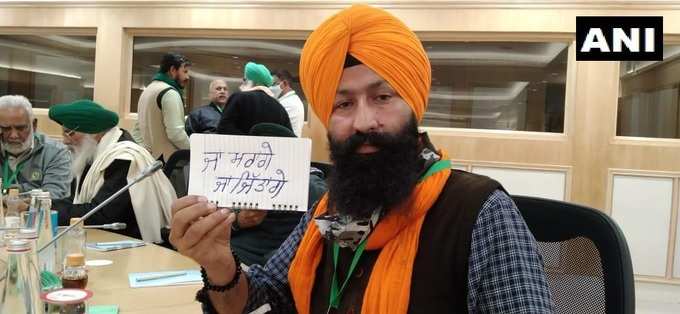 ANI
ਜਾ ਮਰਗੇ
ਜਾ ਜਿੱਤਾਗੇ